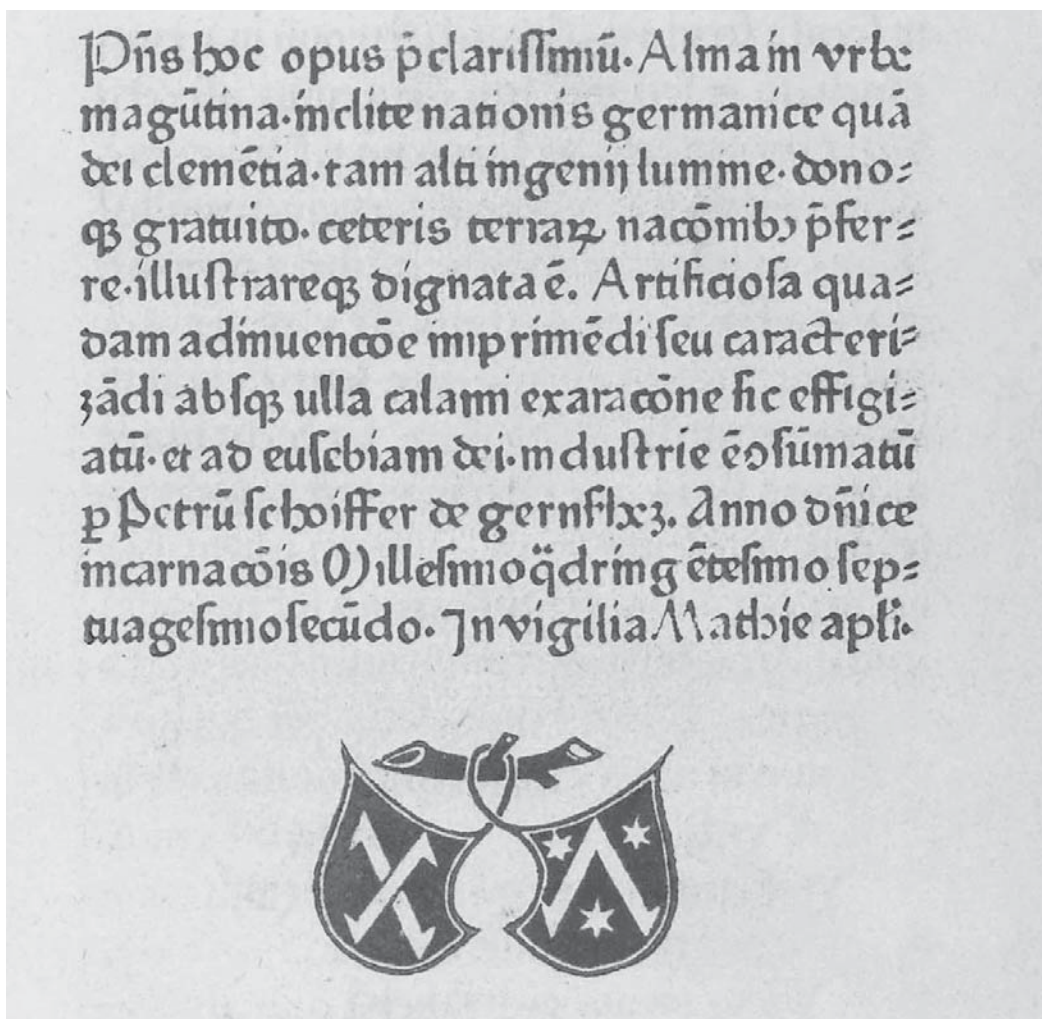 Pn̄s hoc opus p̄clarissimū. Alma in vrbe
magūtina. inclite nationis germanice quā
dei clemētia. tam alti ingenij lumine. dono⸗
qꝫ gratuito. ceteris terraꝝ nacōnibꝫ p̄fer⸗
re. illustrareqꝫ dignata ē. Artificiosa qua⸗
dam adinuencōe imprimēdi seu caracteri⸗
zādi absqꝫ ulla calami exaracōne sic effigi⸗
atū. et ad eusebiam dei. industrie ē ꝯsūmatū
ꝑ Petrū schoiffer de gernsheꝫ. Anno dn̄ice
incarnacōis Millesimo q̈dringētesimo sep⸗
tuagesimo secūdo. In vigilia Mathie apl̄i.